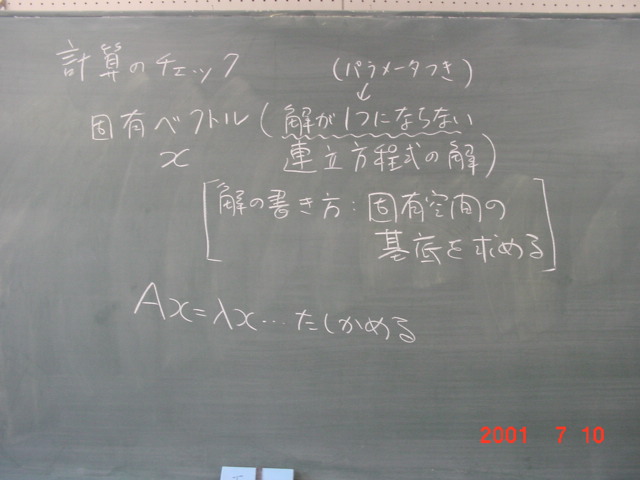 計算のチェック
(パラメータつき)
↓
固有ベクトル(解が1つにならない
x 連立方程式の解)
[解の書き方:固有空間の
基底を求める]
Ax=λx…たしかめる
2001 7 10